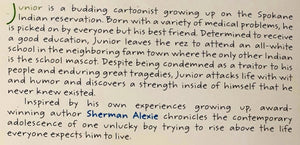 Junior is a budding cartoonist growing up on the Spokane
Indian reservation. Born with a variety of medical problems, he
is picked on by everyone but his best friend. Determined to receive
a good education, Junior leaves the rez to attend an all-white
school in the neighboring farm town where the only other Indian
is the school mascot. Despite being condemned as a traitor to his
people and enduring great tragedies, Junior attacks life with wit
and humor and discovers a strength inside of himself that he
never knew existed.
Inspired by his own experiences growing up, award-
winning author Sherman Alexie chronicles the contemporary
adolescence of one unlucky boy trying to rise above the life
everyone expects him to live.